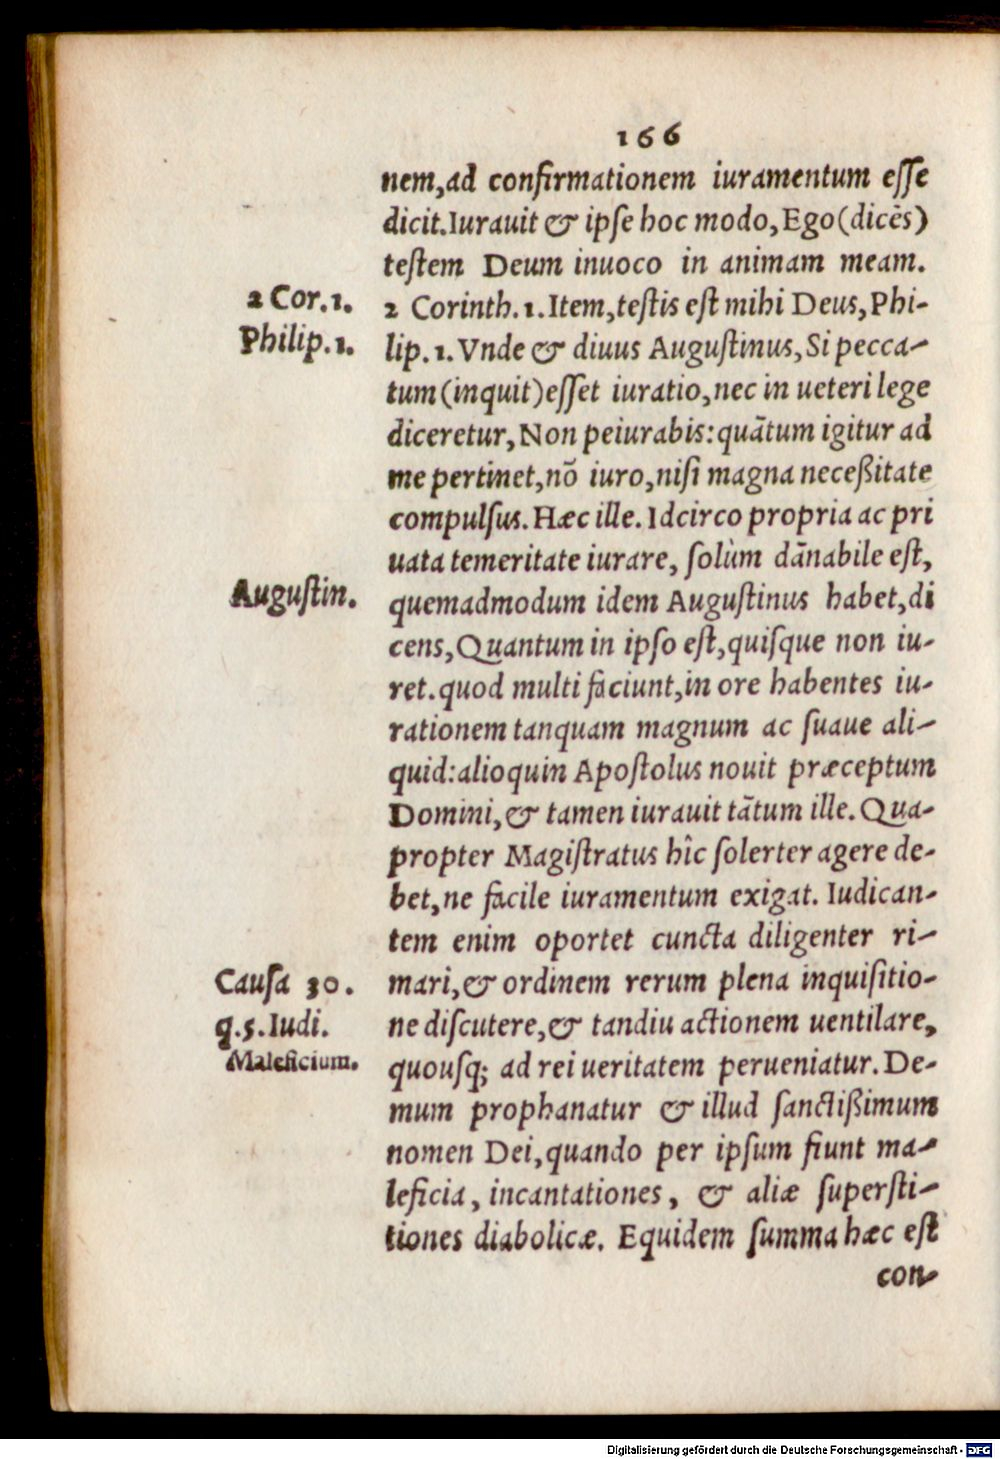 166
nem,ad confirmationem iuramentum eſſe
dicit.Iurauit & ipſe hoc modo,Ego(dicēs)
teſtem Deum inuoco in animam meam.
2 Cor.1.
2 Corinth.1.Item,teſtis eſt mihi Deus,Phi-
Philip.1.
lip.1.Vnde & diuus Auguſtinus,Si pecca-
tum(inquit)eſſet iuratio,nec in ueteri lege
diceretur,Non peiurabis:quātum igitur ad
me pertinet,nō iuro,niſi magna neceßitate
compulſus.Hæc ille.Idcirco propria ac pri
uata temeritate iurare, ſolùm dānabile eſt,
Auguſtin.
quemadmodum idem Auguſtinus habet,di
cens,Quantum in ipſo eſt,quiſque non iu-
ret.quod multi faciunt,in ore habentes iu-
rationem tanquam magnum ac ſuaue ali-
quid:alioquin Apoſtolus nouit præceptum
Domini,& tamen iurauit tātum ille.Qua-
propter Magiſtratus hîc ſolerter agere de-
bet,ne facile iuramentum exigat. Iudican-
tem enim oportet cuncta diligenter ri-
Cauſa 30.
mari,& ordinem rerum plena inquiſitio-
q.5.Iudi.
ne diſcutere,& tandiu actionem uentilare,
Maleficium.
quouſq; ad rei ueritatem perueniatur.De-
mum prophanatur & illud ſanctißimum
nomen Dei,quando per ipſum fiunt ma-
leficia, incantationes, & aliæ ſuperſti-
tiones diabolicæ. Equidem ſumma hæc eſt
con-
Digitalisierung gefördert durch die Deutsche Forschungsgemeinschaft - DFG